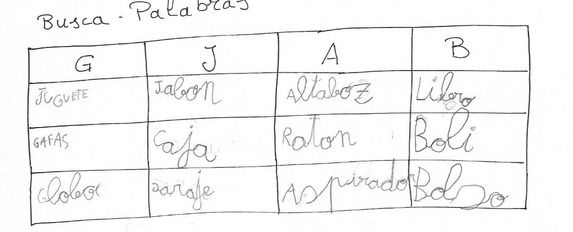 Busca - Palabras
G J A B
JUGUETE Jabon Altaboz Libro
GAFAS Caja Raton Boli
Globo Aspirador Bolso